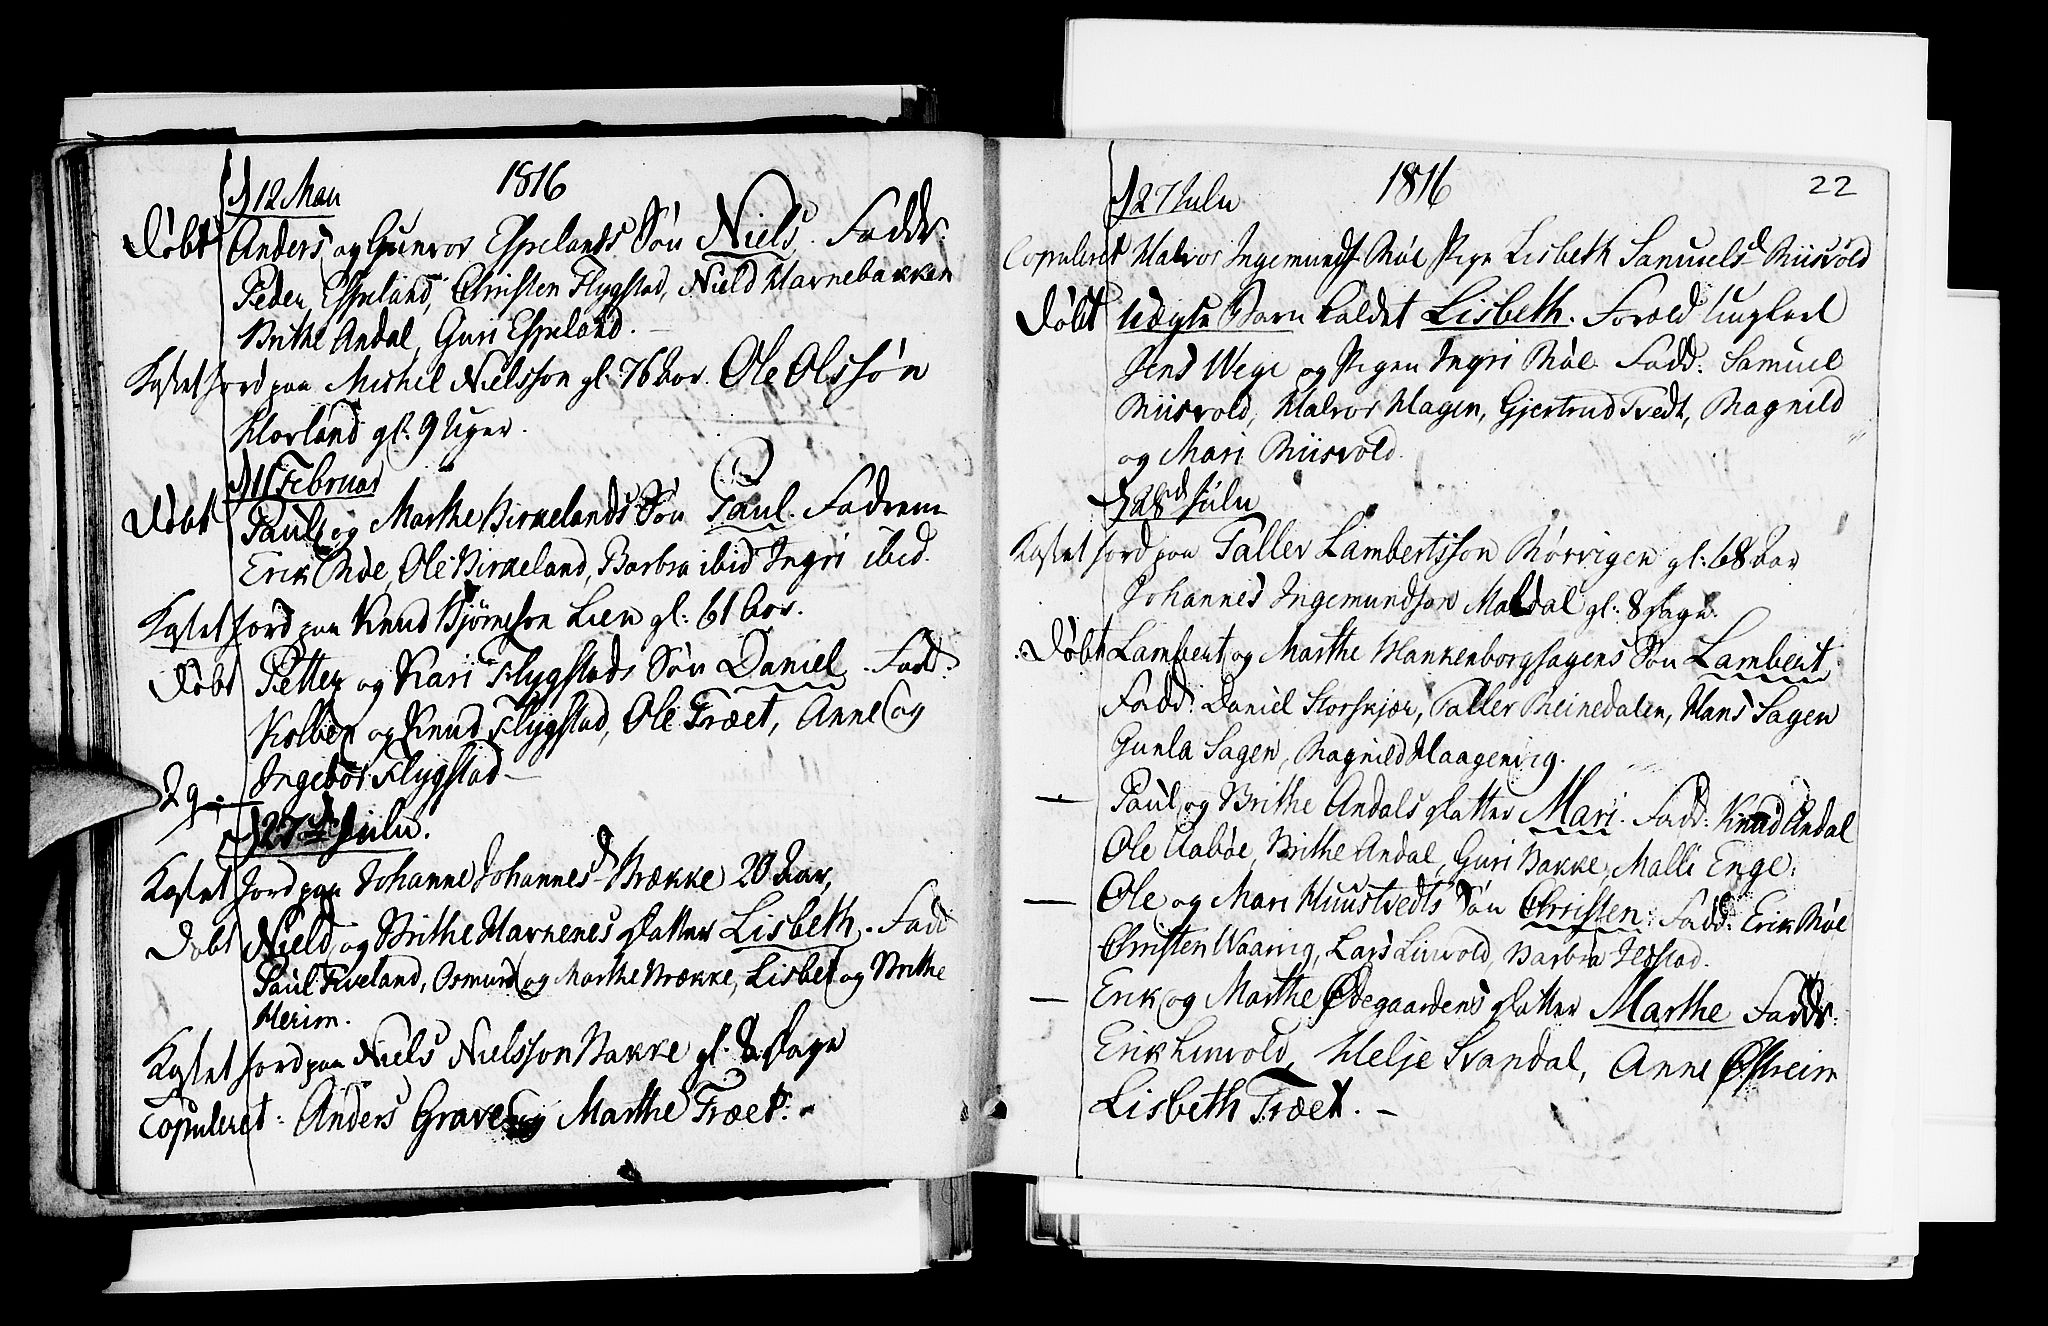 1816
d 12 Mau
Døbt Anders og Gunvor Espelands Søn Niels. Faddr:
Peder Espeland, Christen Flygstad, Nield Harnebakken
Brithe Andal, Guri Espeland. —
Kastet Jord paa Michel Nielsson gl. 76 Aar. Ole Olssøn
Horland gl: 9 Uger.
d 11 Februar
Døbt Paul og Marthe Birkelands Søn Paul. Fadrene
Erik Møe, Ole Birkeland, Barbra ibid Ingri ibid.
Kastet Jord paa Knud Bjørnsson Lien gl: 61 Aar.
Døbt Petter og Kari Flygstads Søn Daniel. Fadd:
Kolben og Knud Flygstad, Ole Træet, Anne og
Ingebor Flygstad —
d 27de Julu.
Kastet Jord paa Johanne Johannesd Brække 20 Aar,
Døbt Nield og Brithe Harkenes Datter Lisbeth. Fadd
Paul Tveland, Osmund og Marthe Brække, Lisbet og Brithe
Herim.
Kastet Jord paa Niels Nielsson Bakke gl. 8 Dage
Copuleret: Anders Grave og Marthe Træet. -
1816
22
d 27 Julu
Copuleret Halvor Ingemunds Røe Pige Lisbeth Samuelsd Riisvold
Døbt Uægte Barn kaldet Lisbeth. Foræld Ungkarl
Jens Wege og Pigen Ingri Røe Fadd: Samuel
Riisvold, Halvor Hagen, Gjertrud Tvedt, Ragnild
og Mari Riisvold.
d 28d Julu
Kastet Jord paa Taller Lambertsson Rørvigen gl: 68 Aar
Johannes Ingemundson Maldal gl: 8 Dage.
Døbt Lambert og Marthe Blankenborgsagens Søn Lambert.
Fadd: Daniel Storskjær, Taller Reinedalen, Hans Sagen
Gunla Sagen, Ragnild Haagenvig.
— Paul og Brithe Andals Datter Mari. Fadd: Knud Andal
Ole Aabøe, Brithe Andal, Guri Bakke, Malli Enge.
— Ole og Mari Huustvedts Søn Christen. Fadd: Erik Røe
Christen Waavig, Lars Linvold, Barbra
— Erik og Marthe Ødegaardens Datter Marthe Faddr:
Erik Linvold, Helje Svandal, Anne Østreim
Lisbeth Træet. —